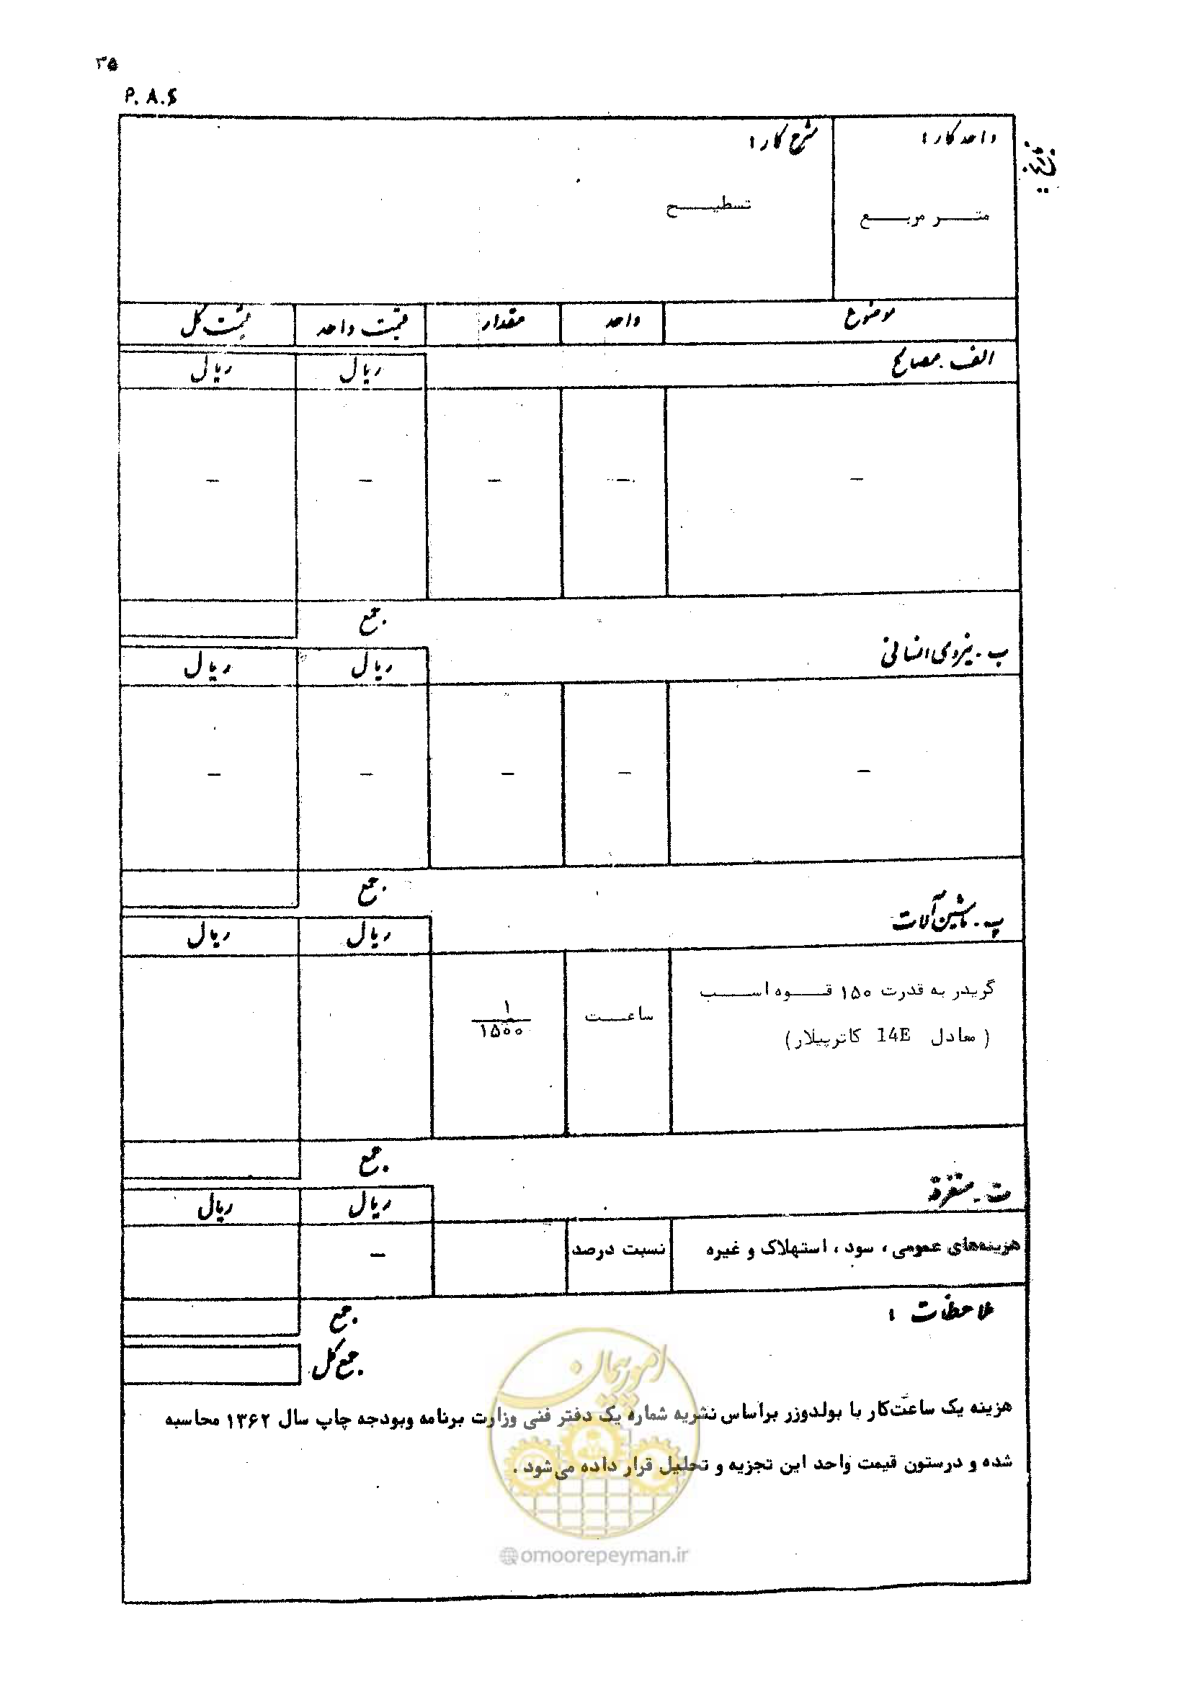 ۳۵
P. A. S
واحد کار :
شرح کار :
متر مربع
تسطیح
موضوع واحد مقدار قیمت واحد قیمت کل
الف - مصالح ریال ریال
– – – – –
جمع
ب - نیروی انسانی ریال ریال
– – – – –
جمع
پ - ماشین آلات ریال ریال
گریدر به قدرت ۱۵۰ قوه اسب ساعت ۱/۱۵۰۰
( معادل 14E کاترپیلار )
جمع
ت - متفرقه ریال ریال
هزینه‌های عمومی ، سود ، استهلاک و غیره نسبت درصد –
ملاحظات :
جمع
جمع کل
هزینه یک ساعت‌کار با بولدوزر براساس نشریه شماره یک دفتر فنی وزارت برنامه وبودجه چاپ سال ۱۳۶۲ محاسبه
شده و درستون قیمت واحد این تجزیه و تحلیل قرار داده می‌شود .
امور پیمان
@omoorepeyman.ir